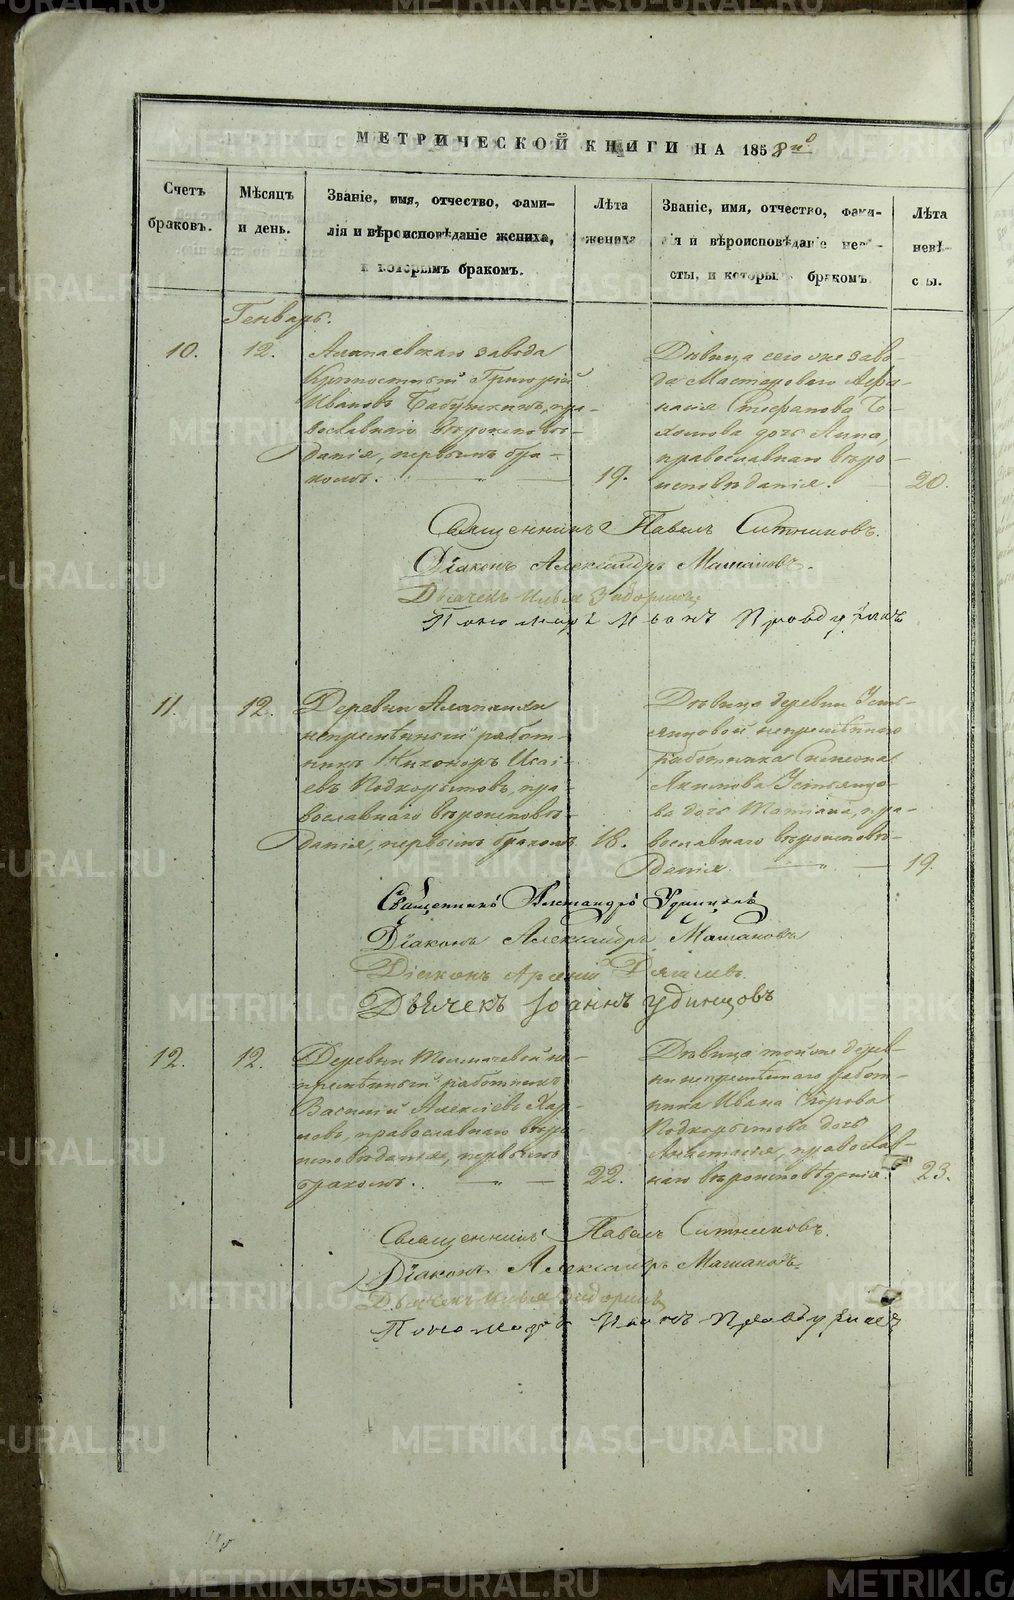 МЕТРИЧЕСКОЙ КНИГИ НА 1858й
Счетъ браковъ.
Мѣсяцъ и день.
Званіе, имя, отчество, фами-
лія и вѣроисповѣданіе жениха,
и которымъ бракомъ.
Лѣта
жениха
Званіе, имя, отчество, фами-
лія и вѣроисповѣданіе невѣ-
сты, и которымъ бракомъ.
Лѣта
невѣ-
сты.
Генварь.
10.
12.
Алапаевскаго завода
Крѣпостный Григорій
Ивановъ Бабушкинъ, пра-
вославнаго вѣроисповѣ-
данія, первымъ бра-
комъ.
19.
Дѣвица сего же заво-
да Мастероваго Афа-
насія Стефанова
дочь Анна,
православнаго вѣро-
исповѣданія.
20.
Священникъ Павелъ Ситниковъ.
Діаконъ Александръ Машановъ.
Дьячекъ Илья
Пономарь Иванъ
11.
12.
Деревни Алапаихи
непремѣнный работ-
никъ Никоноръ Исаі-
евъ Подкорытовъ, пра-
вославнаго вѣроисповѣ-
данія, первымъ бракомъ
18.
Дѣвица деревни Усть-
янцовой непремѣннаго
работника Симеона
Якимова Устьянцо-
ва дочь Татіана, пра-
вославнаго вѣроисповѣ-
данія
19.
Священникъ Александръ Удинцовъ
Діаконъ Александръ Машановъ
Діаконъ Арсеній
Дьячекъ Іоаннъ Удинцовъ
12.
12.
Деревни Толмачевой не-
премѣнный работникъ
Василій Алексіевъ
православнаго вѣро-
исповѣданія, первымъ
бракомъ.
22.
Дѣвица тойже дерев-
ни непремѣннаго работ-
ника Ивана Егорова
Подкорытова дочь
Анастасія, православ-
наго вѣроисповѣданія.
23.
Священникъ Павелъ Ситниковъ.
Діаконъ Александръ Машановъ.
Дьячекъ Илья
Пономарь Иванъ
METRIKI.GASO-URAL.RU